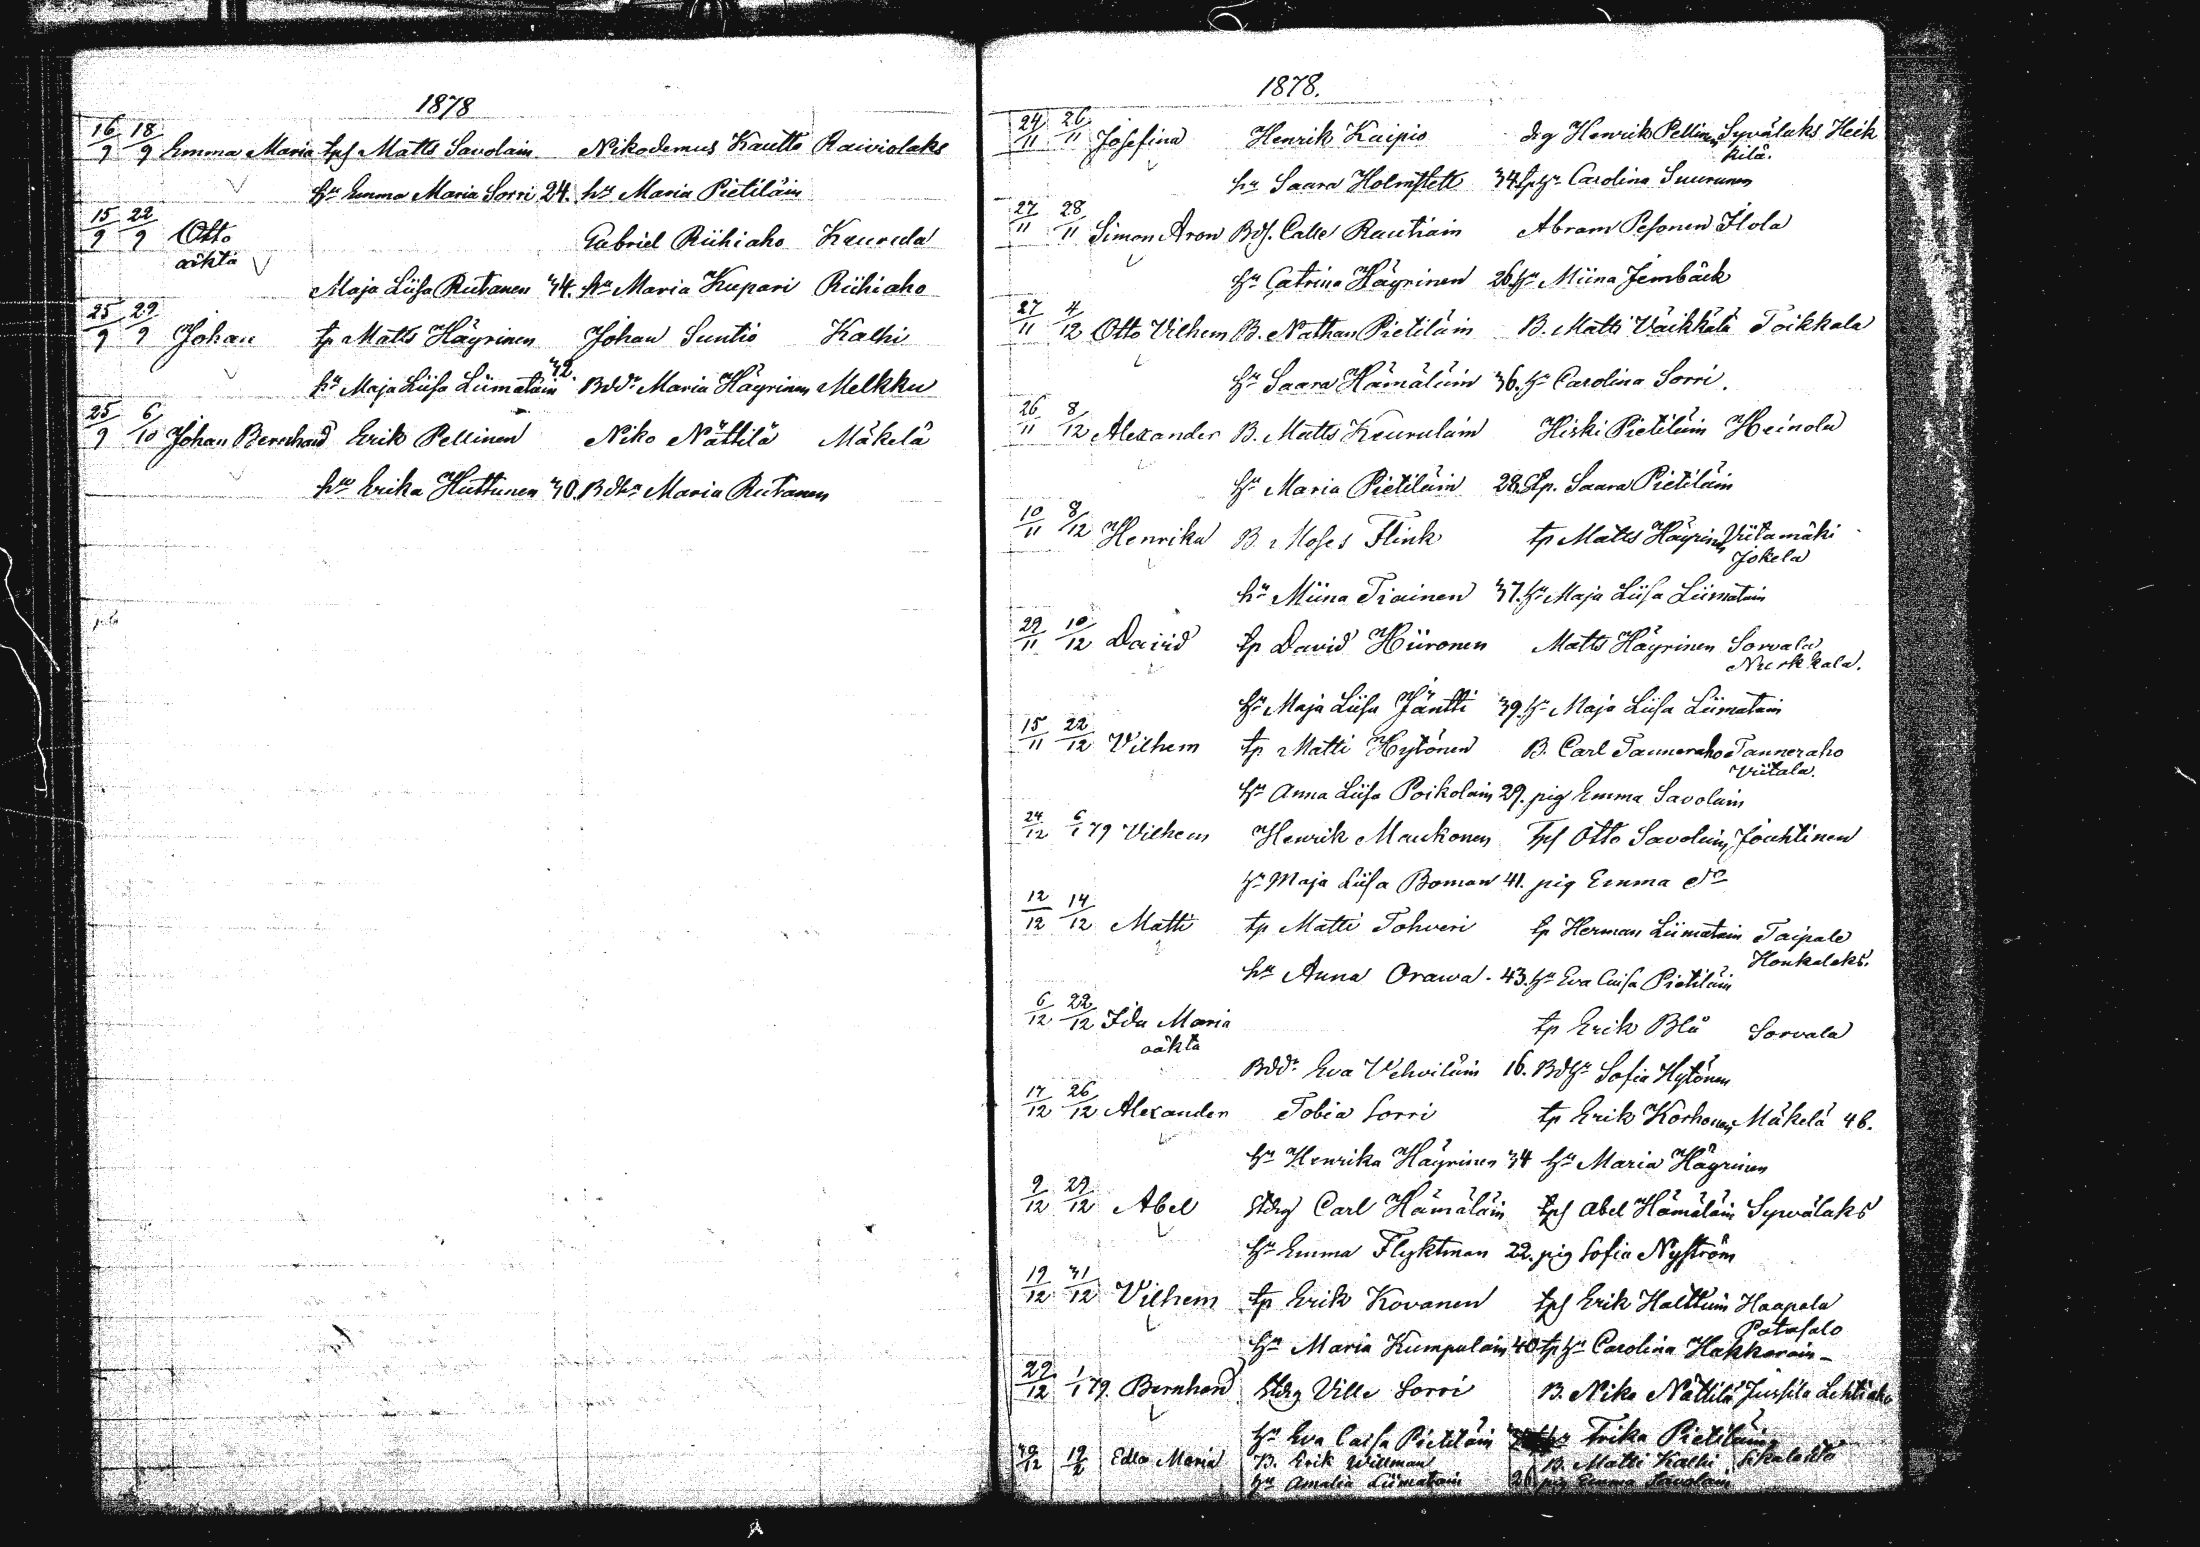 1878
16/9 18/9 Emma Maria tpf Matts Savolain Nikodemus Kautto Raiviolaks
hu Emma Maria Sorri 24. hu Maria Pietiläin
15/9 22/9 Otto Gabriel Riihiaho Keurula
oäkta
Maja Liisa Rutanen 34. hu Maria Kupari Riihiaho
25/9 29/9 Johan tp Matts Häyrinen Johan Suntio Kalhi
hu Maja Liisa Liimatain 32. Bdd: Maria Häyrinen Melkku
25/9 6/10 Johan Bernhard Erik Pellinen Niko Nättilä Mäkelä
hu Erika Huttunen 30. Bdhu Maria Rutanen
1878.
24/11 26/11 Josefina Henrik Kaipio drg Henrik Pellinen Syväluks Heik
kilä.
hu Saara Holmstett 34 tphu Carolina Suurunen
27/11 28/11 Simon Aron Bdf. Calle Rautiain Abram Pesonen Ilola
hu Catrina Häyrinen 26. hu Miina Jernbäck
27/11 4/12 Otto Vilhem B. Nathan Pietiläin B. Matti Väikkälä Toikkala
hu Saara Hämäläin 36. hu Carolina Sorri.
26/11 8/12 Alexander B. Matts Keurulain Hiski Pietiläin Heinola
hu Maria Pietiläin 28. tp. Saara Pietiläin
10/11 8/12 Henrika B. Moses Flink tp Matts Häyrinen Viitamäki
Jokela
hu Miina Tiainen 37. hu Maja Liisa Liimatain
29/11 10/12 David tp David Hiironen Matts Häyrinen Sorvala
Nurkkala.
hu Maja Liisa Jäntti 39. hu Maja Liisa Liimatain
15/11 22/12 Vilhem tp Matti Hytönen B. Carl Tanneraho Tanneraho
Viitala.
hu Anna Liisa Poikolain 29. pig Emma Savolain
24/12 6/1 79 Vilhem Henrik Maukonen Tpf Otto Savolain Jouhtinen
hu Maja Liisa Boman 41. pig Emma do
12/12 14/12 Matti tp Matti Tohveri tp Herman Liimatain Taipale
Honkalaks.
hu Anna Orawa. 43. hu Eva Caisa Pietiläin
6/12 22/12 Ida Maria tp Erik Blå Sorvala
oäkta
Bdd: Eva Vehviläin 16. Bdhu Sofia Hytönen
17/12 26/12 Alexander Tobia Sorri tp Erik Korhonen Mäkelä 46.
hu Henrika Häyrinen 34 hu Maria Häyrinen
9/12 29/12 Abel Stdrg Carl Hämäläin tpf Abel Hämäläin Syvälaks
hu Emma Flyktman 22. pig Sofia Nyström
19/12 31/12 Vilhem tp Erik Kovanen tpf Erik Halttuin Haapala
Patasalo
hu Maria Kumpulain 40 tphu Carolina Hakkarain
29/12 1/1 79. Bernhard Stdrg Ville Sorri B. Niko Nättilä Jussila Lehtiaho
hu Eva Caisa Pietiläin hu Erika Pietiläin
30/12 19/2 Edla Maria B. Erik Willman B. Matti Kalhi
hu Amalia Liimatain 26 pig Emma Savolain